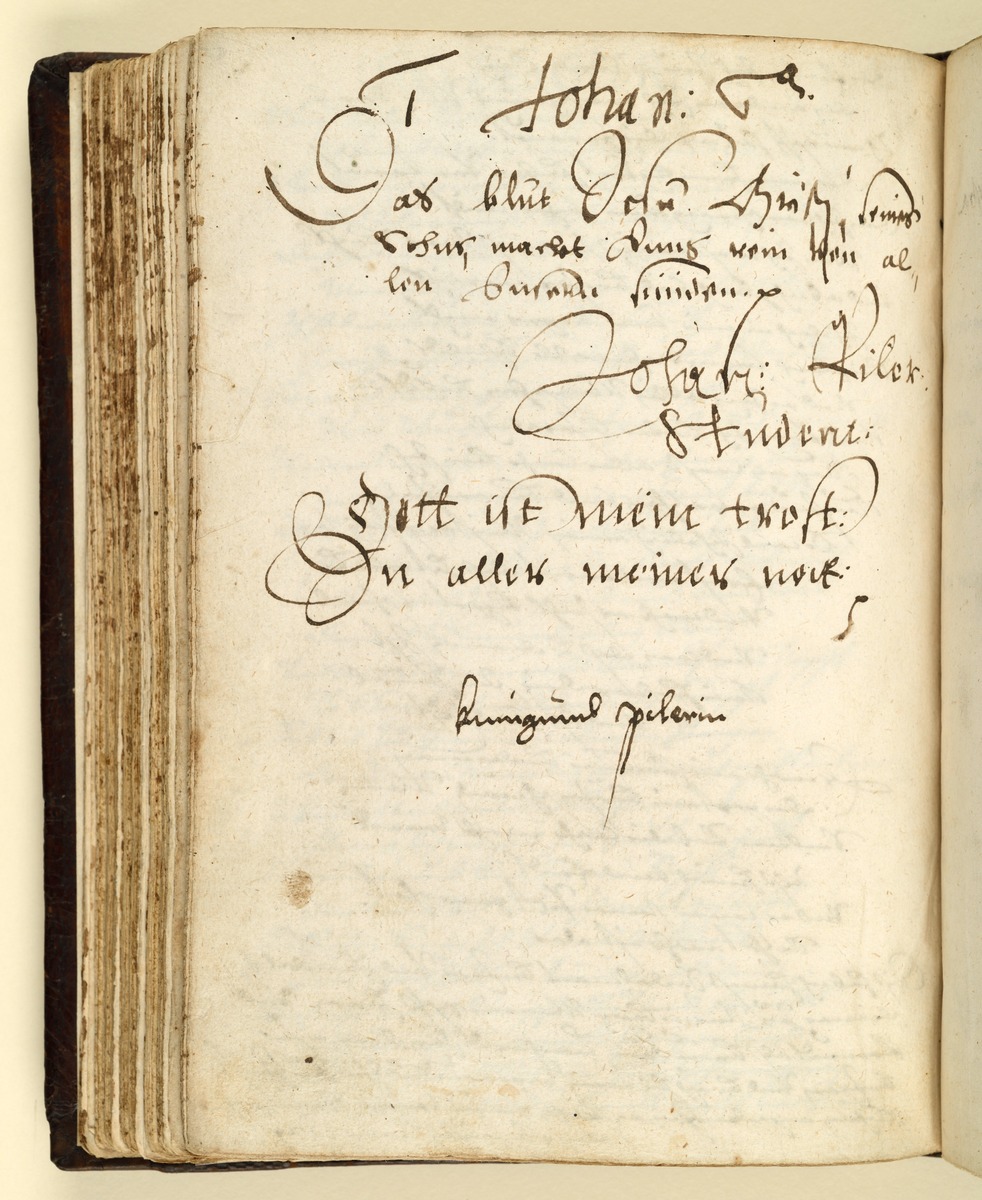 1 Johan: 1.
Das blut Jesu Christj seines
Sohns, macht Vnns rein von al,,
len Vnsern sünden.
Johan: Piler
Student:
Gott ist mein trost:
In aller meiner nott:
kunigund pilerin